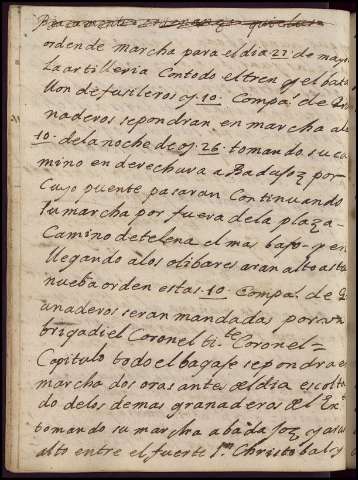 orden de marcha para el dia 27 de mayo
La artilleria Con todo el tren y el bata
llon de fusileros y 10 Compas de Gra
naderos se pondran en marcha a las
10 de la noche de oy 26 tomando su ca
mino en derechura a Badajoz por
Cuyo puente pasaran Continuando
su marcha por fuera de la plaza
Camino de telena el mas bajo y en
llegando a los olibares aran alto asta
nueba orden estas 10 Compas de G
anaderos seran mandadas por un
brigadiel Coronel ti.te Coronel =
Capitulo todo el bagaje se pondra en
marcha dos oras antes del dia escolta
do de los demas granaderos del Ex.to
tomando su marcha a badajoz y aran
alto entre el fuerte S.n Christobal y